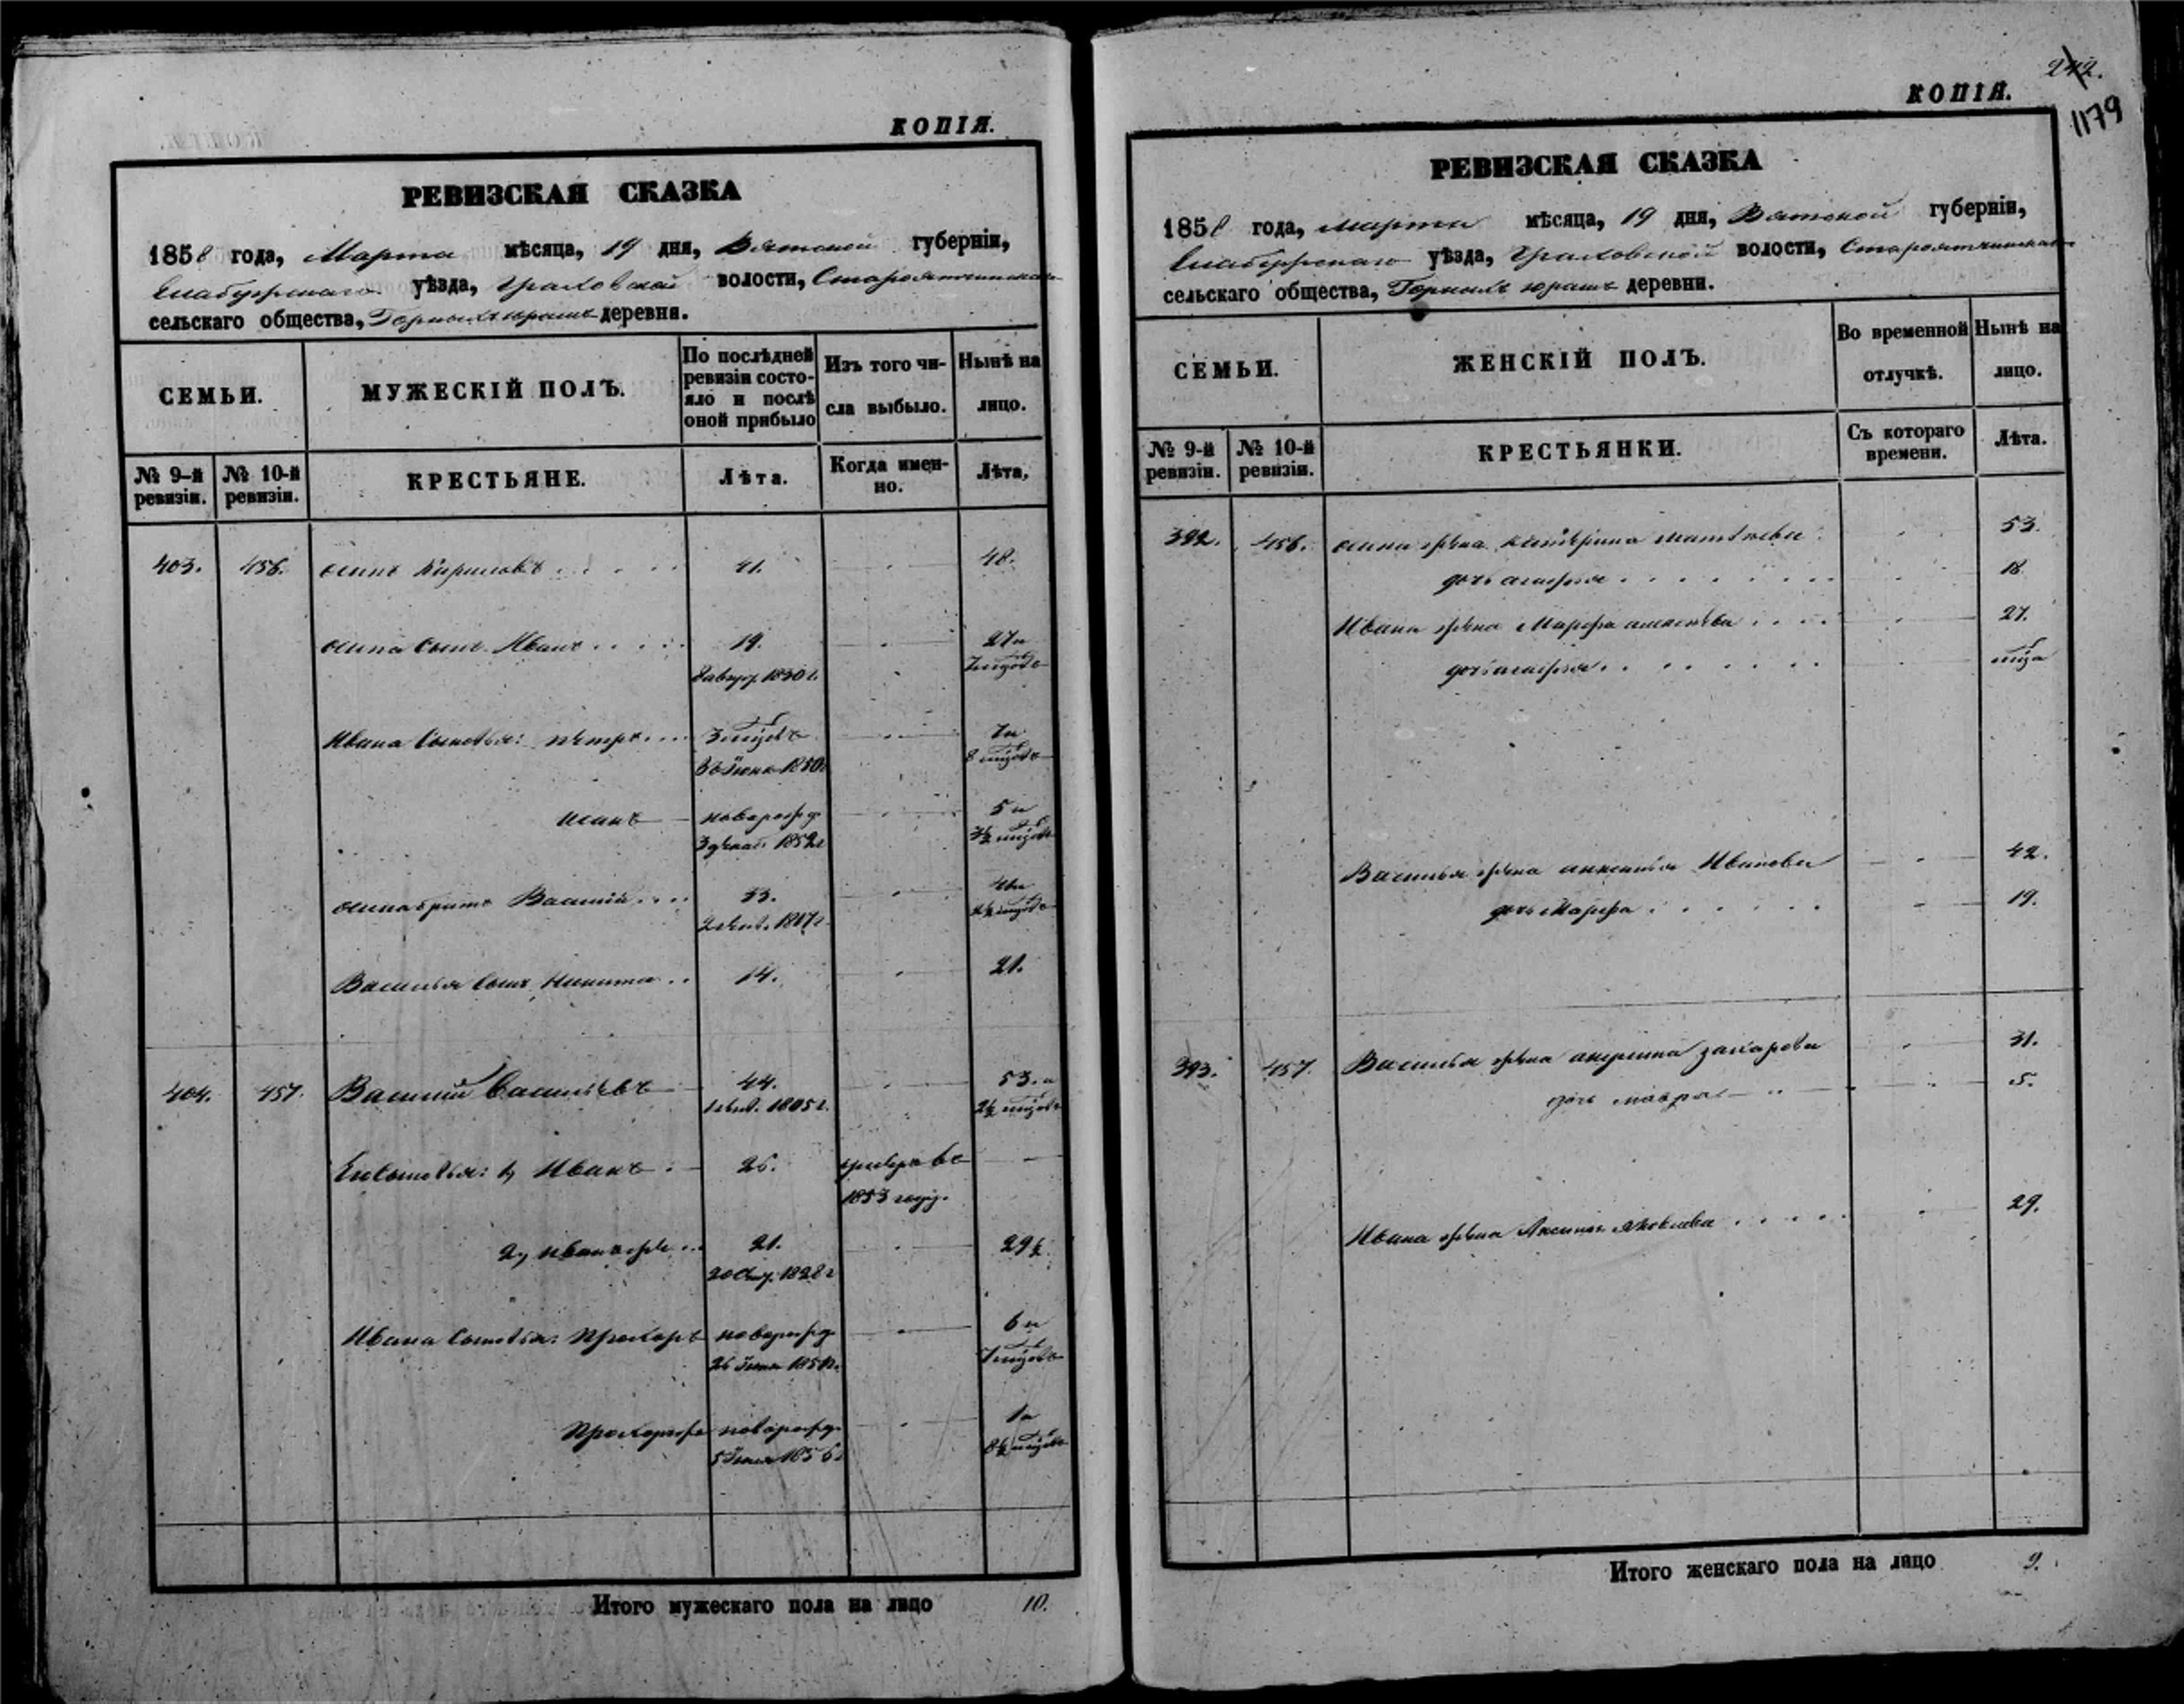 КОПІЯ.
РЕВИЗСКАЯ СКАЗКА
1858 года, Марта мѣсяца, 19 дня, Вятской губерніи,
Елабужскаго уѣзда, волости,
сельскаго общества, деревни.
СЕМЬИ.
МУЖЕСКІЙ ПОЛЪ.
По послѣдней
ревизіи состо-
яло и послѣ
оной прибыло
Изъ того чи-
сла выбыло.
Нынѣ на
лицо.
№ 9-й
ревизіи.
№ 10-й
ревизіи.
КРЕСТЬЯНЕ.
Лѣта.
Когда имен-
но.
Лѣта,
403. 456. Осипъ Кириловъ 41. 48.
Осипа сынъ Иванъ 19. 27 и
1830 г. 7 мѣсяцовъ
Ивана сыновья: Петръ 3 мѣсяцовъ 7 и
8 мѣсяцовъ
новорожд. 5 и
3 декаб. 1852 г. 3½ мѣсяцовъ
Осипа братъ Василій 33.
1817 г.
Василья сынъ Никита 14. 21.
404. 457. Василій Васильевъ 44. 53. и
1805 г. 2½ мѣсяцовъ
Его сыновья: 1, Иванъ 26. въ
1853 году.
2, Иванъ же 21. 29½
20 1828 г
Ивана сыновья: Прохоръ новорожд. 6 и
26 1851 г.
Прохоръ же новорожд. 1 и
5 1856 г. 8½ мѣсяцовъ
Итого мужескаго пола на лицо 10.
242.
1179
КОПІЯ.
РЕВИЗСКАЯ СКАЗКА
1858 года, Марта мѣсяца, 19 дня, Вятской губерніи,
Елабужскаго уѣзда, волости,
сельскаго общества, деревни.
СЕМЬИ.
ЖЕНСКІЙ ПОЛЪ.
Во временной
отлучкѣ.
Нынѣ на
лицо.
№ 9-й
ревизіи.
№ 10-й
ревизіи.
КРЕСТЬЯНКИ.
Съ котораго
времени.
Лѣта.
392. 456. Осипа жена Катерина Матвѣева 53.
дочь 18.
Ивана жена Марфа 27.
дочь
Василья жена Иванова 42.
дочь Марфа 19.
393. 457. Василья жена Захарова 31.
дочь Мавра 5.
Ивана жена Аксинья Яковлева 29.
Итого женскаго пола на лицо 9.